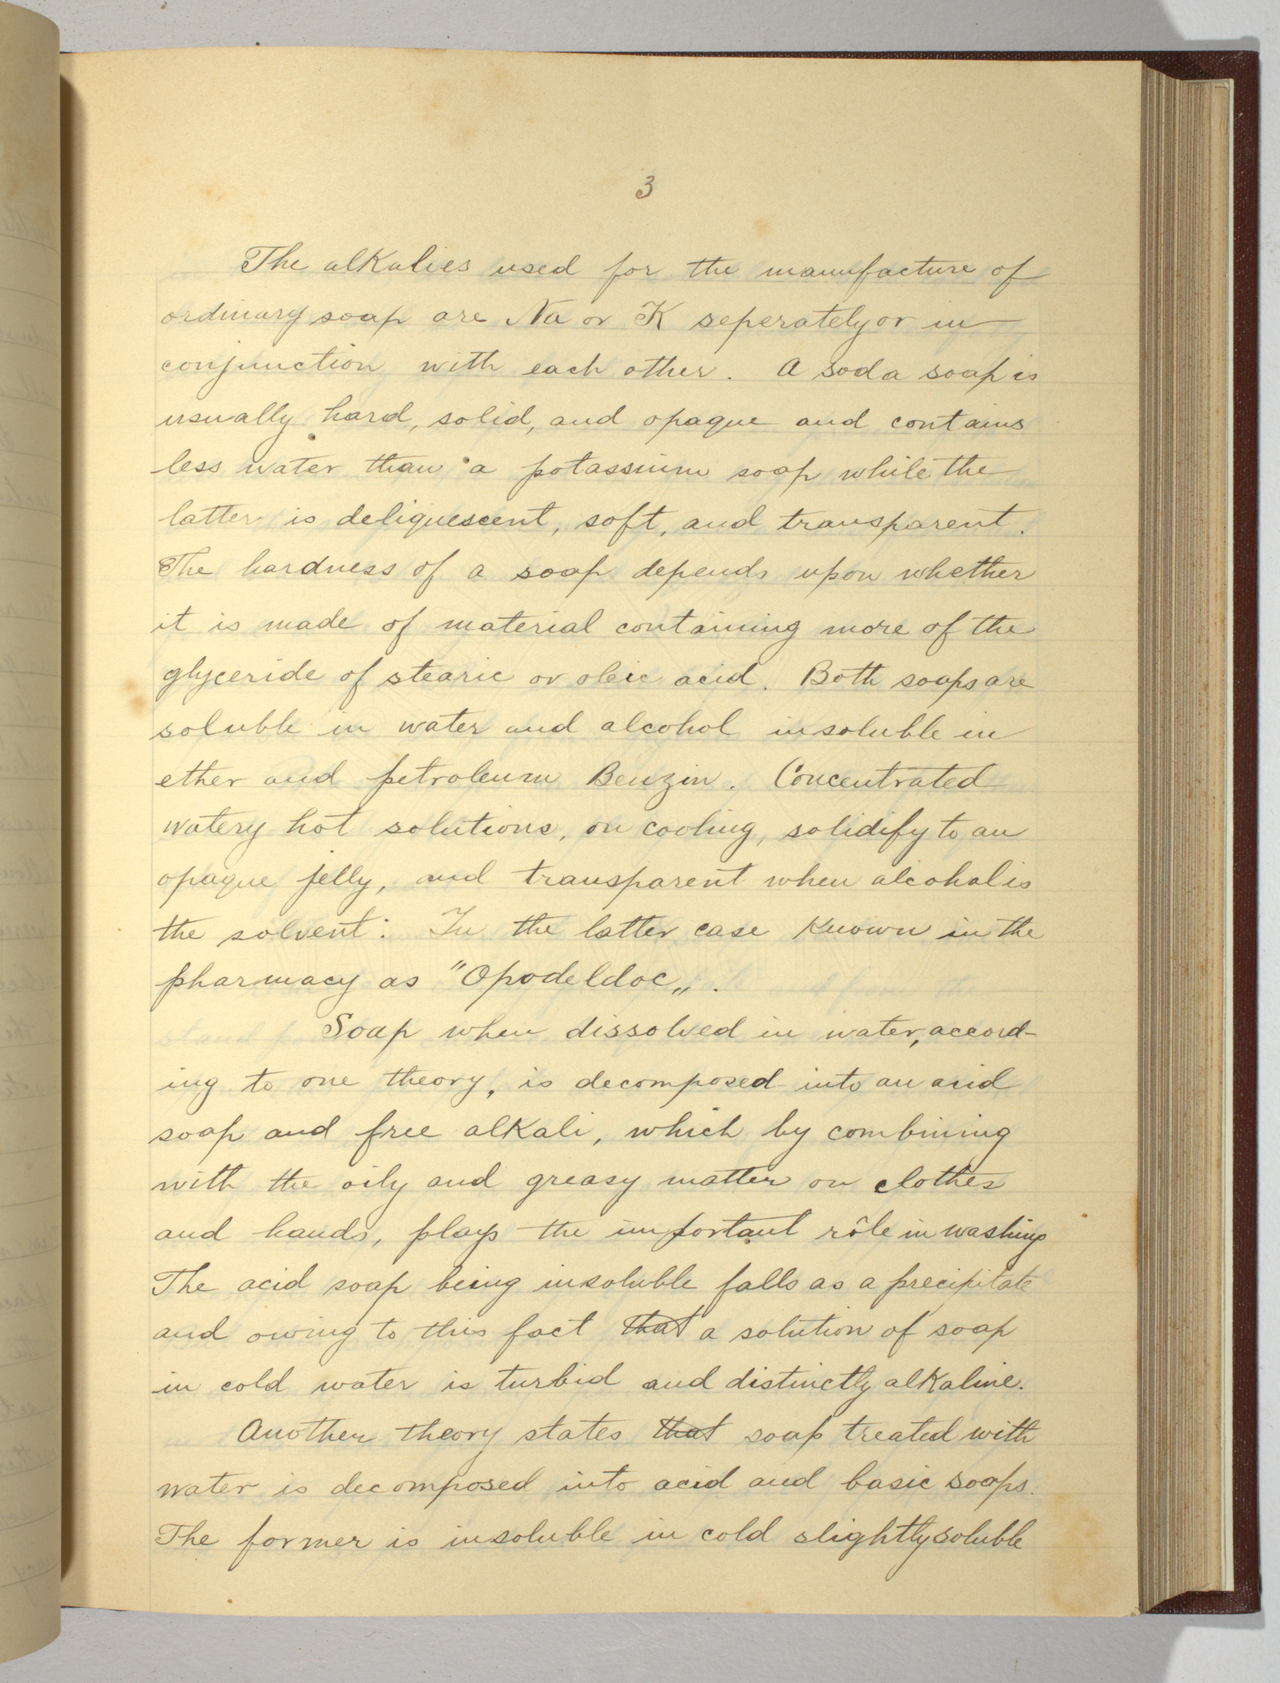 3
The alkalies used for the manufacture of
ordinary soap are Na or K seperately or in
conjunction with each other. A soda soap is
usually hard, solid, and opaque and contains
less water than a potassium soap while the
latter is deliquescent, soft, and transparent.
The hardness of a soap depends upon whether
it is made of material containing more of the
glyceride of stearic or oleic acid. Both soaps are
soluble in water and alcohol insoluble in
ether and petroleum Benzin. Concentrated
watery hot solutions, on cooling, solidify to an
opaque jelly, and transparent when alcohol is
the solvent: In the latter case known in the
pharmacy as "Opodeldoc„.
Soap when dissolved in water, accord-
ing to one theory, is decomposed into an acid
soap and free alkali, which by combining
with the oily and greasy matter on clothes
and hands, plays the important rôle in washing
The acid soap being insoluble falls as a precipitate
and owing to this fact that a solution of soap
in cold water is turbid and distinctly alkaline.
Another theory states that soap treated with
water is decomposed into acid and basic soaps.
The former is insoluble in cold slightly soluble